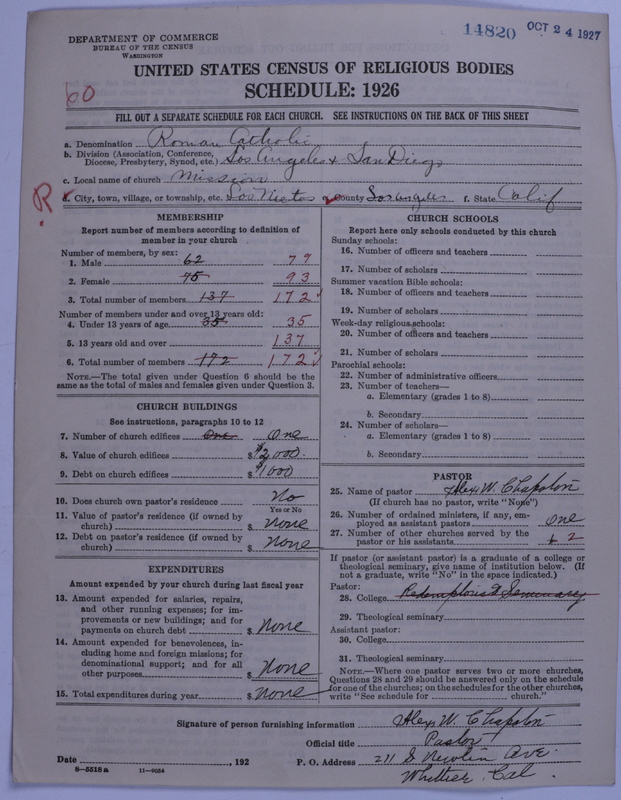 DEPARTMENT OF COMMERCE
BUREAU OF THE CENSUS
WASHINGTON
14820 OCT 24 1927
UNITED STATES CENSUS OF RELIGIOUS BODIES
SCHEDULE: 1926
60
FILL OUT A SEPARATE SCHEDULE FOR EACH CHURCH. SEE INSTRUCTIONS ON THE BACK OF THIS SHEET
a. Denomination Roman Catholic
b. Division (Association, Conference, Diocese, Presbytery, Synod, etc.) Los Angeles & San Diego
c. Local name of church Mission
R
d. City, town, village, or township, etc. Los Nietos e. County Los Angeles f. State Calif
MEMBERSHIP
Report number of members according to definition of
member in your church
Number of members, by sex:
1. Male 62 79
2. Female 75 93
3. Total number of members 137 172
Number of members under and over 13 years old:
4. Under 13 years of age 35 35
5. 13 years old and over 137
6. Total number of members 172 172
NOTE.—The total given under Question 6 should be the
same as the total of males and females given under Question 3.
CHURCH BUILDINGS
See instructions, paragraphs 10 to 12
7. Number of church edifices One One
8. Value of church edifices $ $2000.
9. Debt on church edifices $ $1000
10. Does church own pastor's residence No
Yes or No
11. Value of pastor's residence (if owned by
church) $ None
12. Debt on pastor's residence (if owned by
church) $ None
EXPENDITURES
Amount expended by your church during last fiscal year
13. Amount expended for salaries, repairs,
and other running expenses; for im-
provements or new buildings; and for
payments on church debt $ None
14. Amount expended for benevolences, in-
cluding home and foreign missions; for
denominational support; and for all
other purposes $ None
15. Total expenditures during year $ None
CHURCH SCHOOLS
Report here only schools conducted by this church
Sunday schools:
16. Number of officers and teachers
17. Number of scholars
Summer vacation Bible schools:
18. Number of officers and teachers
19. Number of scholars
Week-day religious schools:
20. Number of officers and teachers
21. Number of scholars
Parochial schools:
22. Number of administrative officers
23. Number of teachers—
a. Elementary (grades 1 to 8)
b. Secondary
24. Number of scholars—
a. Elementary (grades 1 to 8)
b. Secondary
PASTOR
25. Name of pastor Alex. W. Chapolon
(If church has no pastor, write "None")
26. Number of ordained ministers, if any, em-
ployed as assistant pastors one
27. Number of other churches served by the
pastor or his assistants 2
If pastor (or assistant pastor) is a graduate of a college or
theological seminary, give name of institution below. (If
not a graduate, write "No" in the space indicated.)
Pastor:
28. College Redemptorist Seminary
29. Theological seminary
Assistant pastor:
30. College
31. Theological seminary
NOTE.—Where one pastor serves two or more churches,
Questions 28 and 29 should be answered only on the schedule
for one of the churches; on the schedules for the other churches,
write "See schedule for church."
Signature of person furnishing information Alex. W. Chapolon
Official title Pastor
Date , 192 P. O. Address 211 S Newlin Ave.
Whittier, Cal.
8—5518a 11—9054